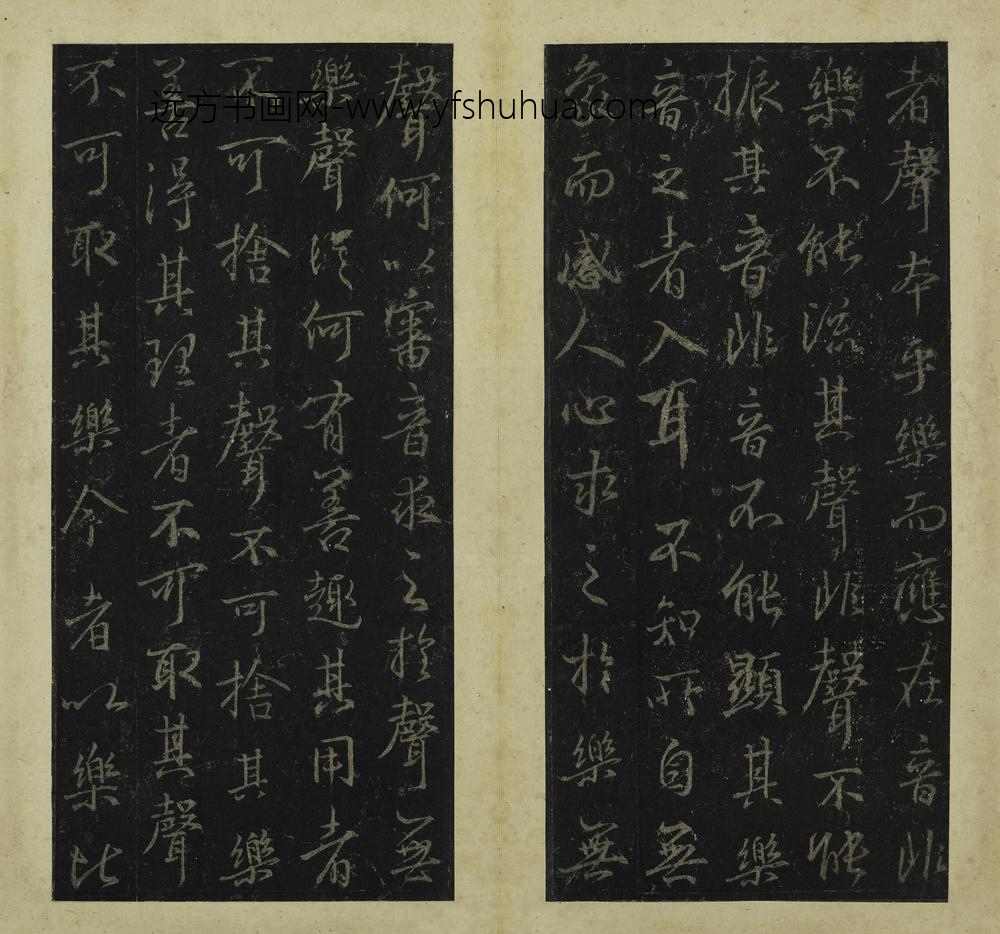 者聲本乎樂而應在音非
樂不能流其聲非聲不能
振其音非音不能顯其樂
音之者入耳不知所自無
而感人心求之於樂無
聲何以審音求之於聲無
樂聲從何有善趣其用者
不可捨其聲不可捨其樂
善得其理者不可取其聲
不可取其樂今者以樂比
远方书画网-www.yfshuhua.com